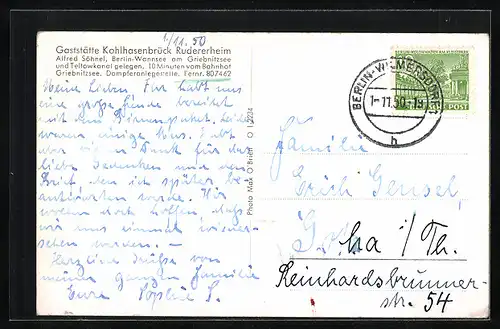 1/11.50
Gaststätte Kohlhasenbrück Rudererheim
Alfred Söhnel, Berlin-Wannsee am Griebnitzsee
und Teltowkanal gelegen. 10 Minuten vom Bahnhof
Griebnitzsee. Dampferanlegestelle. Fernr. 807462
Meine Lieben Ihr habt uns
eine große Freude bereitet
mit dem Blumenpaket. Leider
waren einige
vielen Dank für das
liebe Gedenken und den
Brief, den ich später be-
antworten werde. Wir
wollen doch hoffen, daß
wir uns einmal wieder-
sehen werden. –
Herzliche Grüße von
meiner ganzen Familie
Eure Sophie S.
Photo Max O Brien O 1 2224
BERLIN-WILMERSDORF 1
1-11.50-19
h
POST
Familie
Erich Gensel,
Gotha i/Th.
Reinhardsbrunner-
str. 54